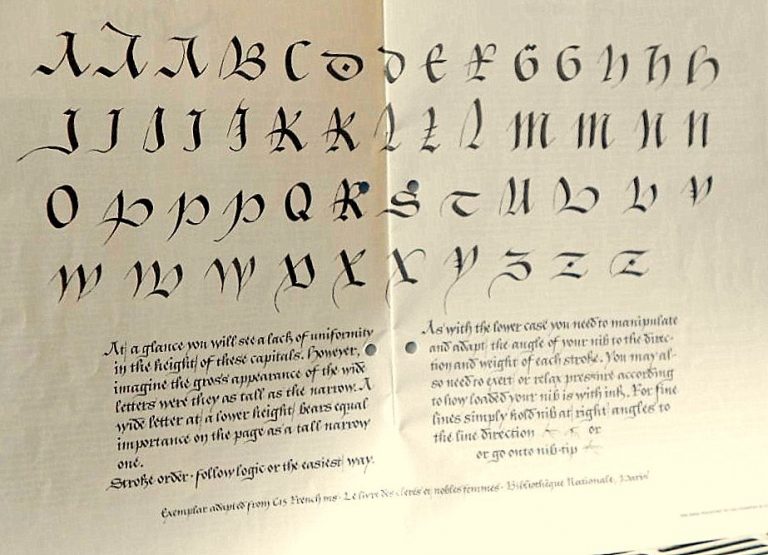 A A A B C D D E E G G h h h
J J J J J K K L L L M M N N
O P P P Q R S T U V V V
W W W X X X Y Z Z Z
At a glance you will see a lack of uniformity
in the height of these capitals. However,
imagine the gross appearance of the wide
letters were they as tall as the narrow. A
wide letter at a lower height bears equal
importance on the page as a tall narrow
one.
Stroke order · follow logic or the easiest way.
As with the lower case you need to manipulate
and adapt the angle of your nib to the direc-
tion and weight of each stroke. You may al-
so need to exert or relax pressure according
to how loaded your nib is with ink. For fine
lines simply hold nib at right angles to
the line direction or
or go onto nib-tip
Exemplar adapted from C15 French ms · Le livre des cleres et nobles femmes · Bibliothèque Nationale, Paris